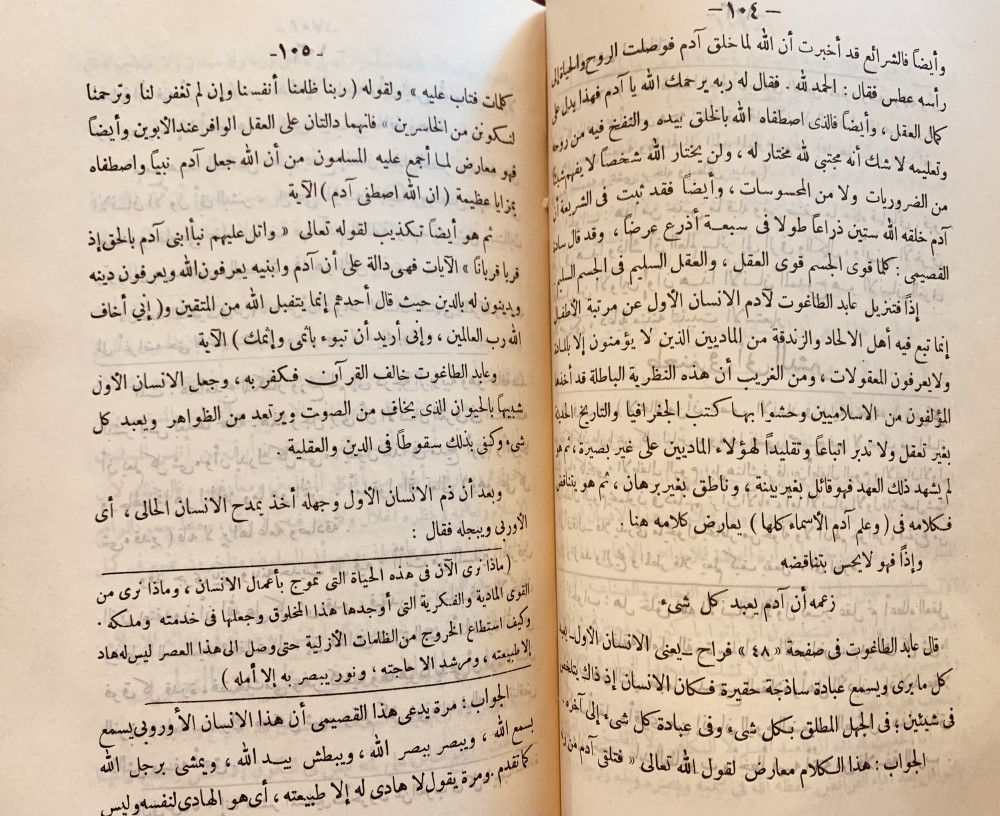 — ١٠٤ —
وأيضاً فالشرائع قد أخبرت أن الله لما خلق آدم فوصلت الروح والحياة إلى
رأسه عطس فقال : الحمد لله . فقال له ربه يرحمك الله يا آدم فهذا يدل على
كمال العقل ، وأيضاً فالذى اصطفاه الله بالخلق بيده والنفخ فيه من روحه
وتعليمه لا شك أنه مجتبى لله مختار له ، ولن يختار الله شخصاً لا يفهم شيئا
من الضروريات ولا من المحسوسات ، وأيضاً فقد ثبت فى الشريعة أن
آدم خلقه الله ستين ذراعاً طولا فى سبعة أذرع عرضاً ، وقد قال سادن
القصيمى : كلما قوى الجسم قوى العقل ، والعقل السليم فى الجسم السليم
إذاً فتنزيل عابد الطاغوت لآدم الانسان الأول عن مرتبة الأطفال
إنما تبع فيه أهل الالحاد والزندقة من الماديين الذين لا يؤمنون إلا بالمادة
ولا يعرفون المعقولات ، ومن الغريب أن هذه النظرية الباطلة قد أخذها
المؤلفون من الاسلاميين وحشوا بها كتب الجغرافيا والتاريخ الحديثة
بغير تعقل ولا تدبر اتباعاً وتقليداً لهؤلاء الماديين على غير بصيرة ، ثم هو
لم يشهد ذلك العهد فهو قائل بغير بينة ، وناطق بغير برهان ، ثم هو يتناقض
فكلامه فى ( وعلم آدم الأسماء كلها ) يعارض كلامه هنا .
وإذاً فهو لا يحس بتناقضه
زعمه أن آدم يعبد كل شىء
قال عابد الطاغوت فى صفحة « ٤٨ » فراح ـ يعنى الانسان الأول ـ يعبد
كل ما يرى ويسمع عبادة ساذجة حقيرة فكان الانسان إذ ذاك يتلخص
فى شيئين ؛ فى الجهل المطلق بكل شىء وفى عبادة كل شىء إلى آخره .
الجواب : هذا الكلام معارض لقول الله تعالى « فتلقى آدم من ربه
ـ ١٠٥ ـ
كلمات فتاب عليه » ولقوله ( ربنا ظلمنا أنفسنا وإن لم تغفر لنا وترحمنا
لنكونن من الخاسرين » فانهما دالتان على العقل الوافر عند الابوين وأيضاً
فهو معارض لما أجمع عليه المسلمون من أن الله جعل آدم نبياً واصطفاه
بمزايا عظيمة ( ان الله اصطفى آدم ) الآية
ثم هو أيضاً تكذيب لقوله تعالى « واتل عليهم نبأ ابنى آدم بالحق إذ
قربا قرباناً » الآيات فهى دالة على أن آدم وابنيه يعرفون الله ويعرفون دينه
ويدينون له بالدين حيث قال أحدهم إنما يتقبل الله من المتقين و( إني أخاف
الله رب العالمين ، وإنى أريد أن تبوء باثمى وإثمك ) الآية
وعابد الطاغوت خالف القرآن فكفر به ، وجعل الانسان الأول
شبيهاً بالحيوان الذى يخاف من الصوت ويرتعد من الظواهر ويعبد كل
شىء وكفى بذلك سقوطاً فى الدين والعقلية .
وبعد أن ذم الانسان الأول وجهله أخذ يمدح الانسان الحالى ، أى
الأوربى ويبجله فقال :
( ماذا نرى الآن فى هذه الحياة التى تموج بأعمال الانسان ، وماذا نرى من
القوى المادية والفكرية التى أوجدها هذا المخلوق وجعلها فى خدمته وملكه .
وكيف استطاع الخروج من الظلمات الأزلية حتى وصل الى هذا العصر ليس له هاد
إلا طبيعته ، ومرشد الا حاجته ، ونور يبصر به إلا أمله )
الجواب : مرة يدعى هذا القصيمى أن هذا الانسان الأوروبى يسمع
بسمع الله ، ويبصر ببصر الله ، ويبطش بيد الله ، ويمشى برجل الله
كما تقدم . ومرة يقول لا هادى له إلا طبيعته ، أى هو الهادى لنفسه وليس